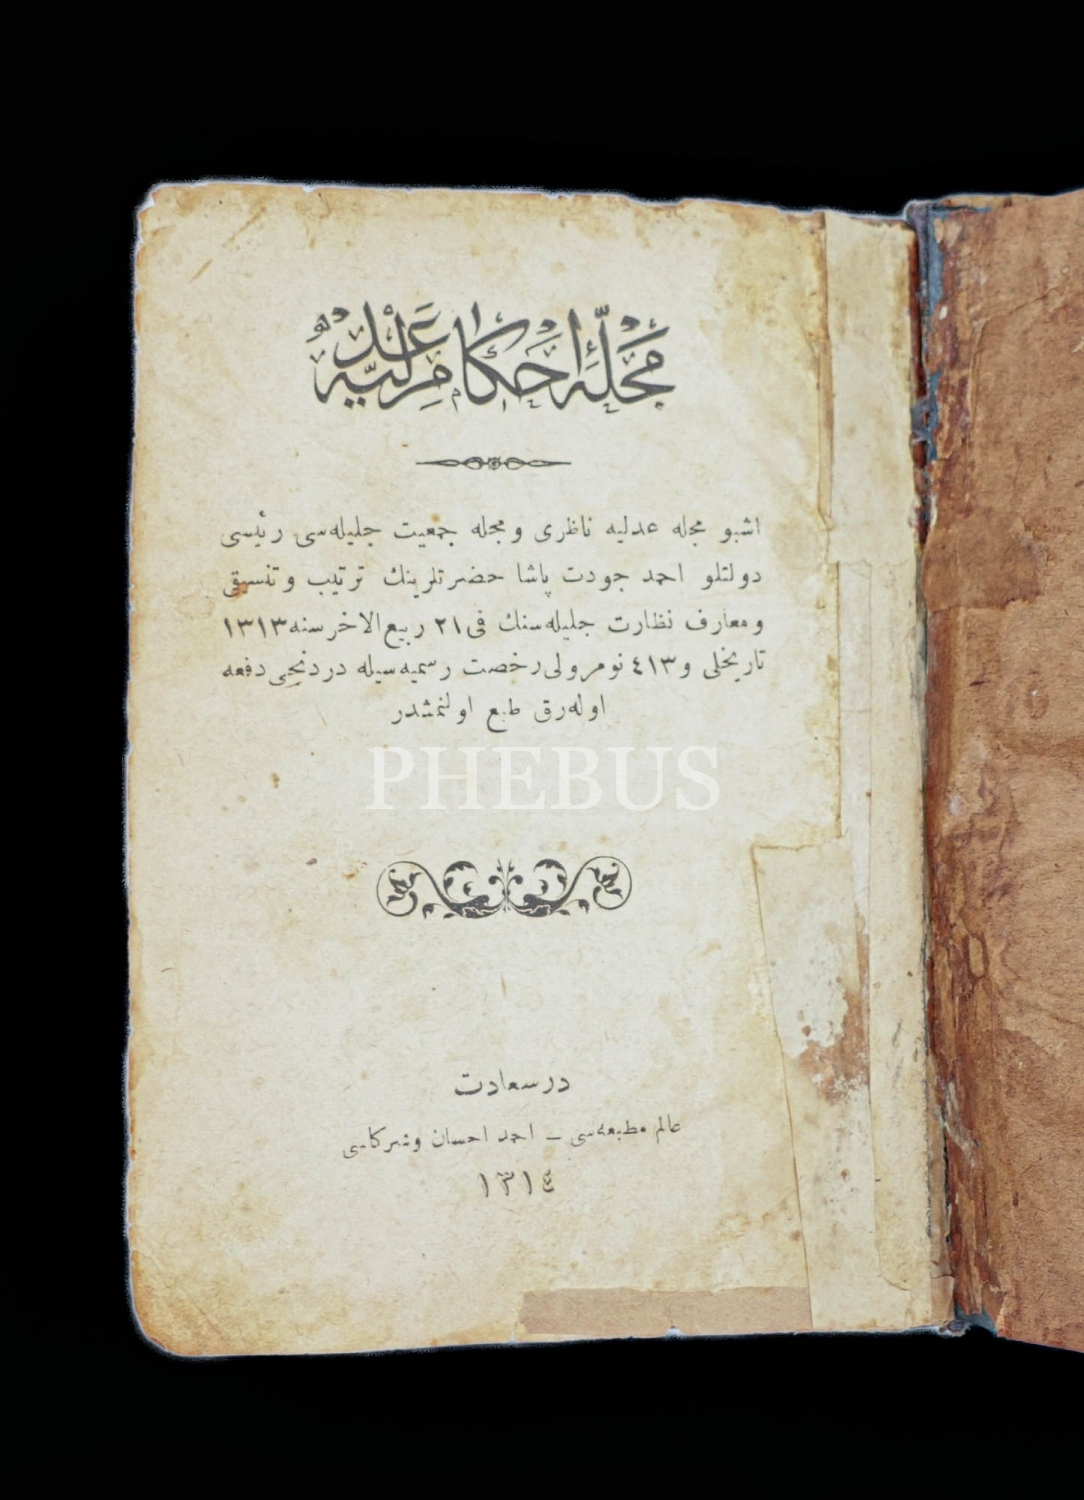 مَجَلَّۀ اَحْكَامِ عَدْلِيَّه
اشبو مجله عدلیه ناظری و مجله جمعیت جلیله‌سی رئیسی
دولتلو احمد جودت پاشا حضرتلرینك ترتیب و تنسیقی
و معارف نظارت جلیله‌سنك فی ۲۱ ربیع الاخر سنه ۱۳۱۳
تاریخلی و ٤١٣ نومرولی رخصت رسمیه‌سیله دردنجی دفعه
اوله‌رق طبع اولنمشدر
PHEBUS
درسعادت
عالم مطبعه‌سی – احمد احسان و شركاسی
١٣١٤